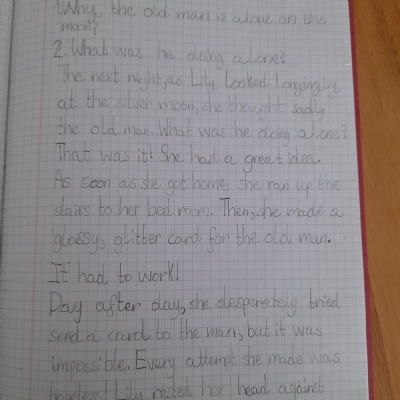 1.Why, the old man is alone on the
moon?
2. What was he doing alone?
The next night, as Lily looked longingly
at the silver moon, she thought sadly
the old man. What was he doing alone?
That was it! She had a great idea.
As soon as she got home, she ran up the
stairs to her bed room. Then, she made a
glossy, glitter card for the old man.
It had to work!
Day after day, she desperately tried
send a card to the man, but it was
impossible. Every attempt she made was
hopeless! Lily rested her head against